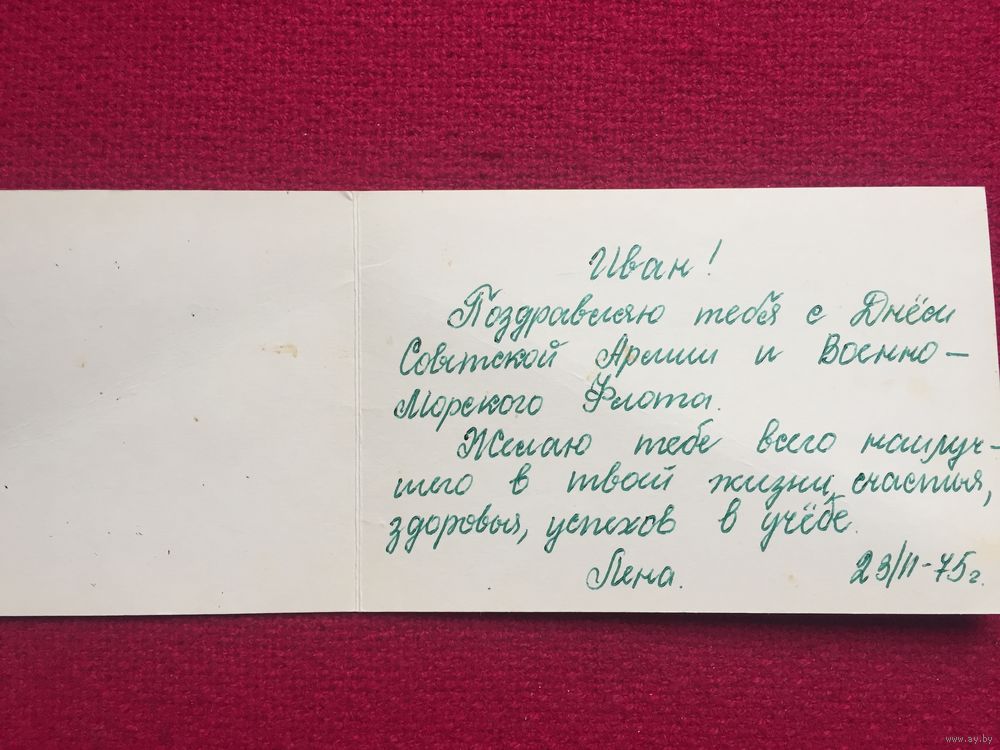 Иван!
Поздравляю тебя с Днём
Советской Армии и Военно-
Морского Флота.
Желаю тебе всего наилуч-
шего в твоей жизни, счастья,
здоровья, успехов в учёбе.
Лена. 23/II-75г.
www.ay.by